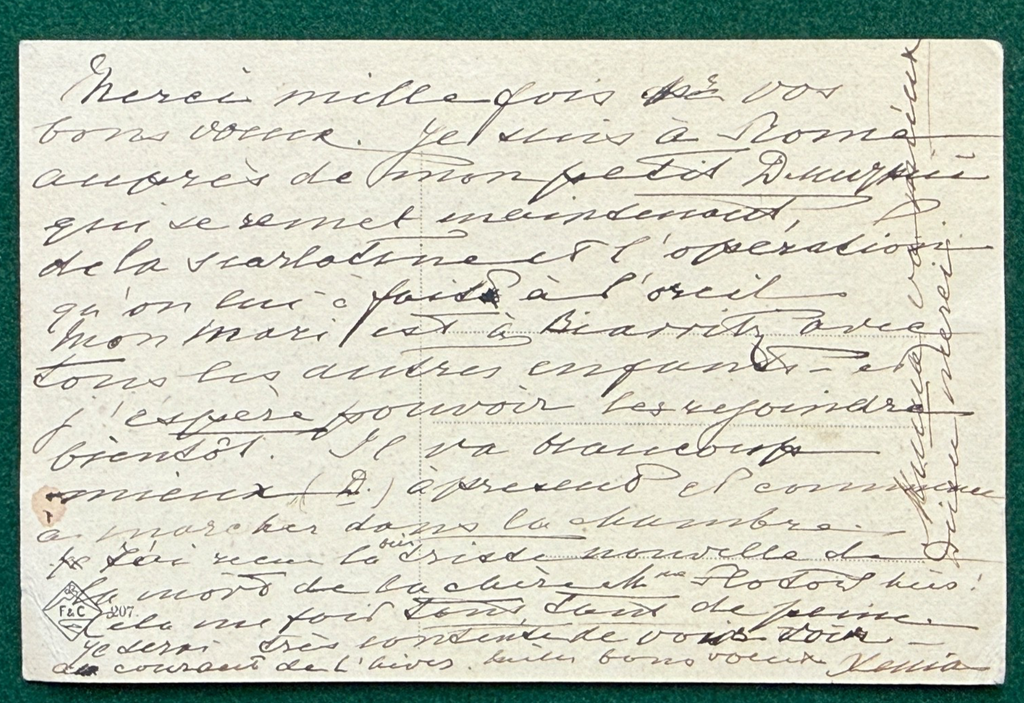 Merci mille fois vos
bons voeux. Je suis à Rome
auprès de mon petit
qui se remet maintenant,
de la scarlatine et l'opération
qu'on lui a fait à l'oreil
Mon mari est à Biarritz avec
tous les autres enfants – et
j'espère pouvoir les rejoindre
bientôt. Il va beaucoup
mieux (D.) à présent et commence
à marcher dans la chambre.
J'ai reçu la triste nouvelle de
la mort de la chère
Cela me fait tant de peine.
Je serai très contente de vous voir –
au courant de l'hiver. bons voeux Xenia
F & C
207.
Dieu merci